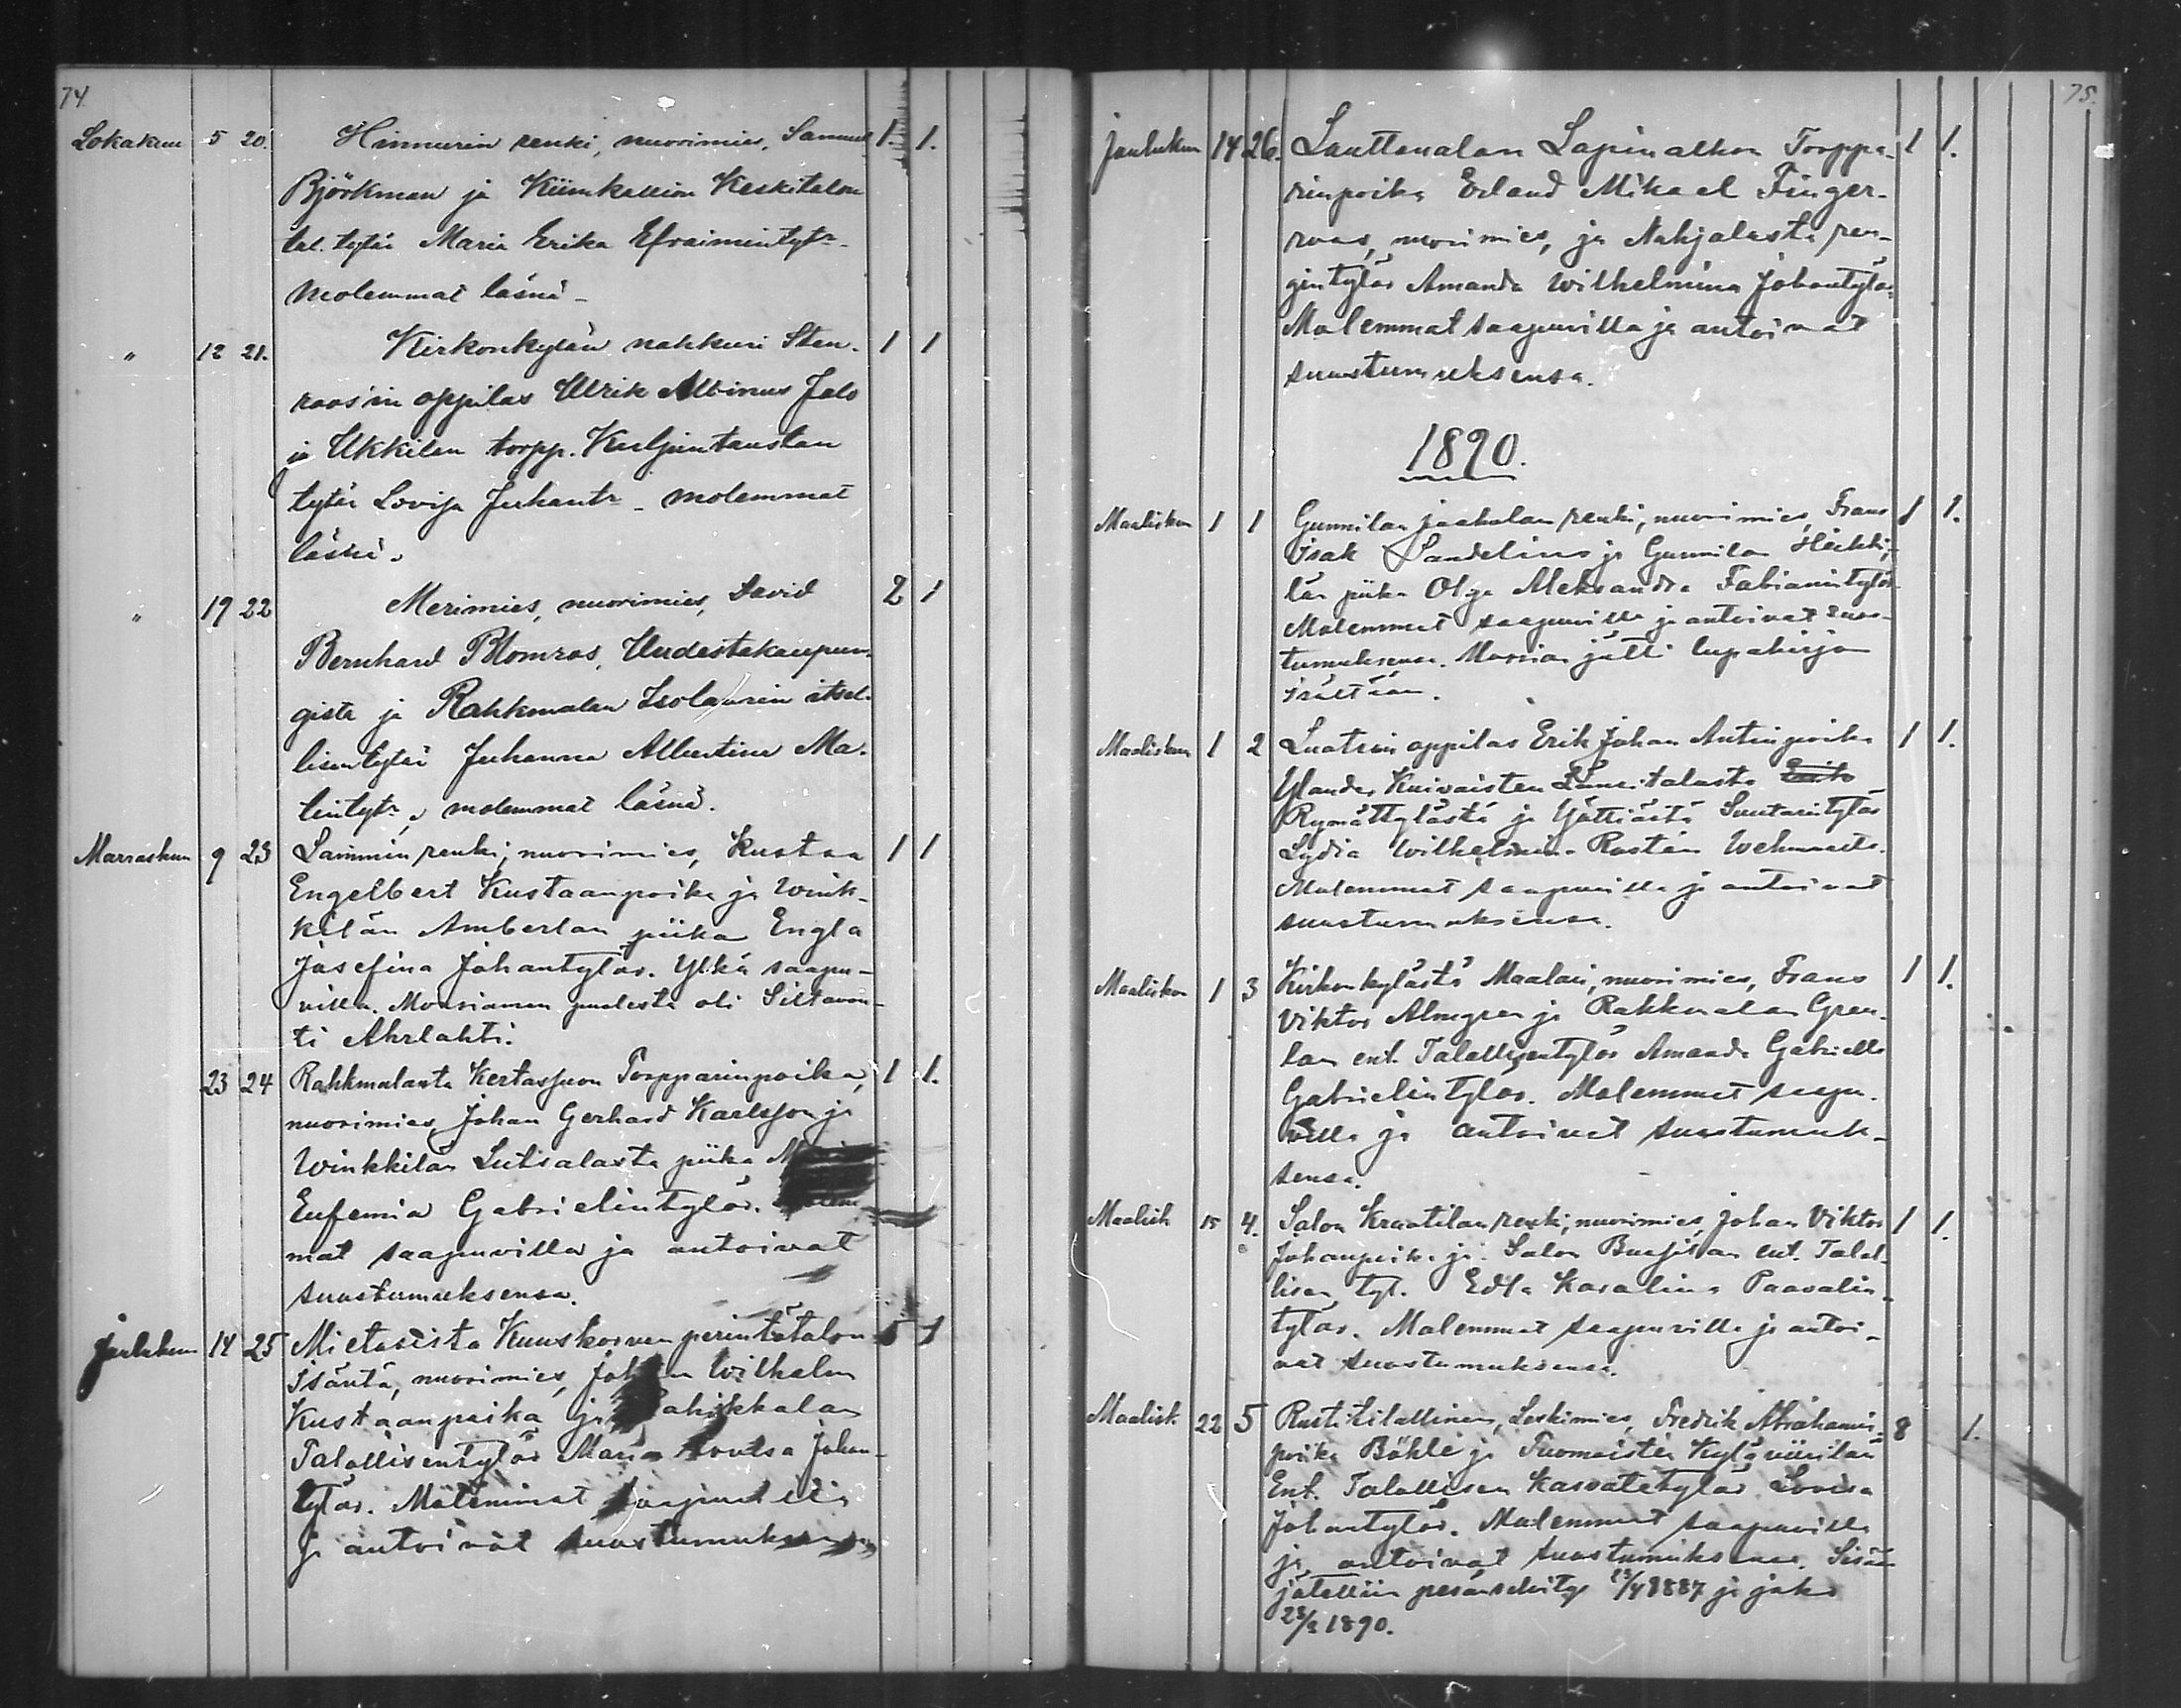 74.
Lokakuu 5 20. Hinnurin renki, nuorimies, Samuel 1. 1.
Björkman ja Kiimkallion Keskitalon
tal. tytär Maria Erika Efraimintytr
molemmat läsnä -
" 12 21. Kirkonkylän nahkuri Sten- 1 1
roos'in oppilas Ulrik Albinus Jalo
ja Ukkilan torpp. Kuljuntaustan
tytär Lovisa Juhantr - molemmat
läsnä.
" 19 22 Merimies, nuorimies, David 2 1
Bernhard Blomros, Uudestakaupun-
gista ja Rahkmalan Isolaurin itsel-
lisentytär Juhanna Albertina Ma-
tintytr, molemmat läsnä.
Marraskuu 9 23 Lammin renki, nuorimies, Kustaa 1 1
Engelbert Kustaanpoika ja Wink-
kilän Amberlan piika Engla
Josefina Johantytär. Ylkä saapu-
villa. Morsiamen puolesta oli Siltavou-
ti Ahrlahti.
23 24 Rahkmalasta Torpparinpoika, 1 1.
nuorimies, Johan Gerhard Karlsson ja
Winkkilän Sutsalasta piika
Eufemia Gabrielintytär.
mat saapuvilla ja antoivat
suostumuksensa.
Joulukuu 14 25 Mietoisista Kuuskorven perintötalon 5 1
Isäntä, nuorimies, Johan Wilhelm
Kustaanpoika ja
Talollisentytär Maria Lovisa Johan-
tytär. Molemmat saapuvilla
ja antoivat suostumuksensa
75.
Joulukuu 14 26. Lauttenalan Lapinalhon Torppa- 1 1.
rinpoika Erland Mikael Finger-
roos, nuorimies, ja Nahjalasta ren-
gintytär Amanda Wilhelmina Johantytär.
Molemmat saapuvilla ja antoivat
suostumuksensa.
1890.
Maaliskuu 1 1 Gunnilan Jaakolan renki, nuorimies, Frans 1 1.
Isak Sandelius ja Gunnilan Heikki-
län piika Olga Aleksandra Fabianintytär
Molemmat saapuvilla ja antoivat suos-
tumuksensa. Morsian jätti lupakirjan
isältään.
Maaliskuu 1 2 Suutarin oppilas Erik Johan Antinpoika 1 1.
Ylander, Kuivaisten
Rymättylästä ja Yättiästä Suutarintytär
Lydia Wilhelmina Rostén Wehmaalta.
Molemmat saapuvilla ja antoivat
suostumuksensa.
Maaliskuu 1 3 Kirkonkylästä Maalari, nuorimies, Frans 1 1.
Viktor Almgren ja Rahkmalan Gren-
lan ent. Talollisentytär Amanda Gabriella
Gabrielintytär. Molemmat saapu-
villa ja antoivat suostumuk-
sensa.
Maalisk 15 4. Salon Kraatilan renki, nuorimies, Johan Viktor 1 1.
Johanpoika ja Salon ent. Talol-
lisen tyt. Edla Karolina Paavalin-
tytär. Molemmat saapuvilla ja antoi-
vat suostumuksensa.
Maalisk 22 5 Rustitilallinen, Leskimies, Fredrik Abrahamin- 8 1.
poika Böhle ja Tuomoisten Kylänviirilän
Ent. Talollisen Kasvatetytär Lovisa
Johantytär. Molemmat saapuvilla
ja antoivat suostumuksensa. Sisään
jätettiin pesänselvitys 23/4 1887 ja jako
23/2 1890.